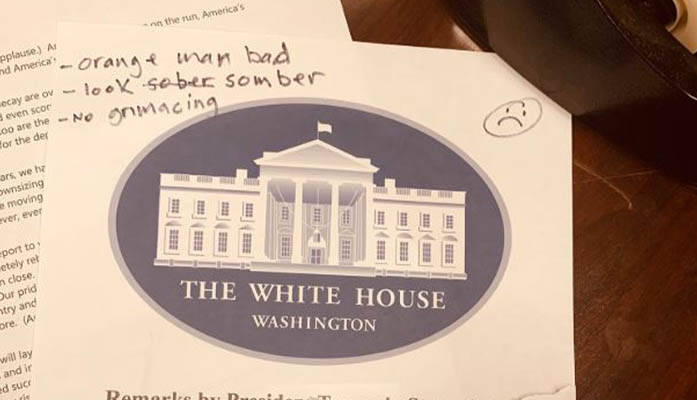 on the run, America's
pplause.) A
nd America'
- orange man bad
- look sober somber
- No grimacing
ecay are ov
d even scor
oo are the
for the de
ars, we ha
ownsizing
e moving
ever, ever
eport to
etely re
n close.
Our prid
ntry and
ore. (A
will lay
and i
ed succ
THE WHITE HOUSE
WASHINGTON
Remarks by President